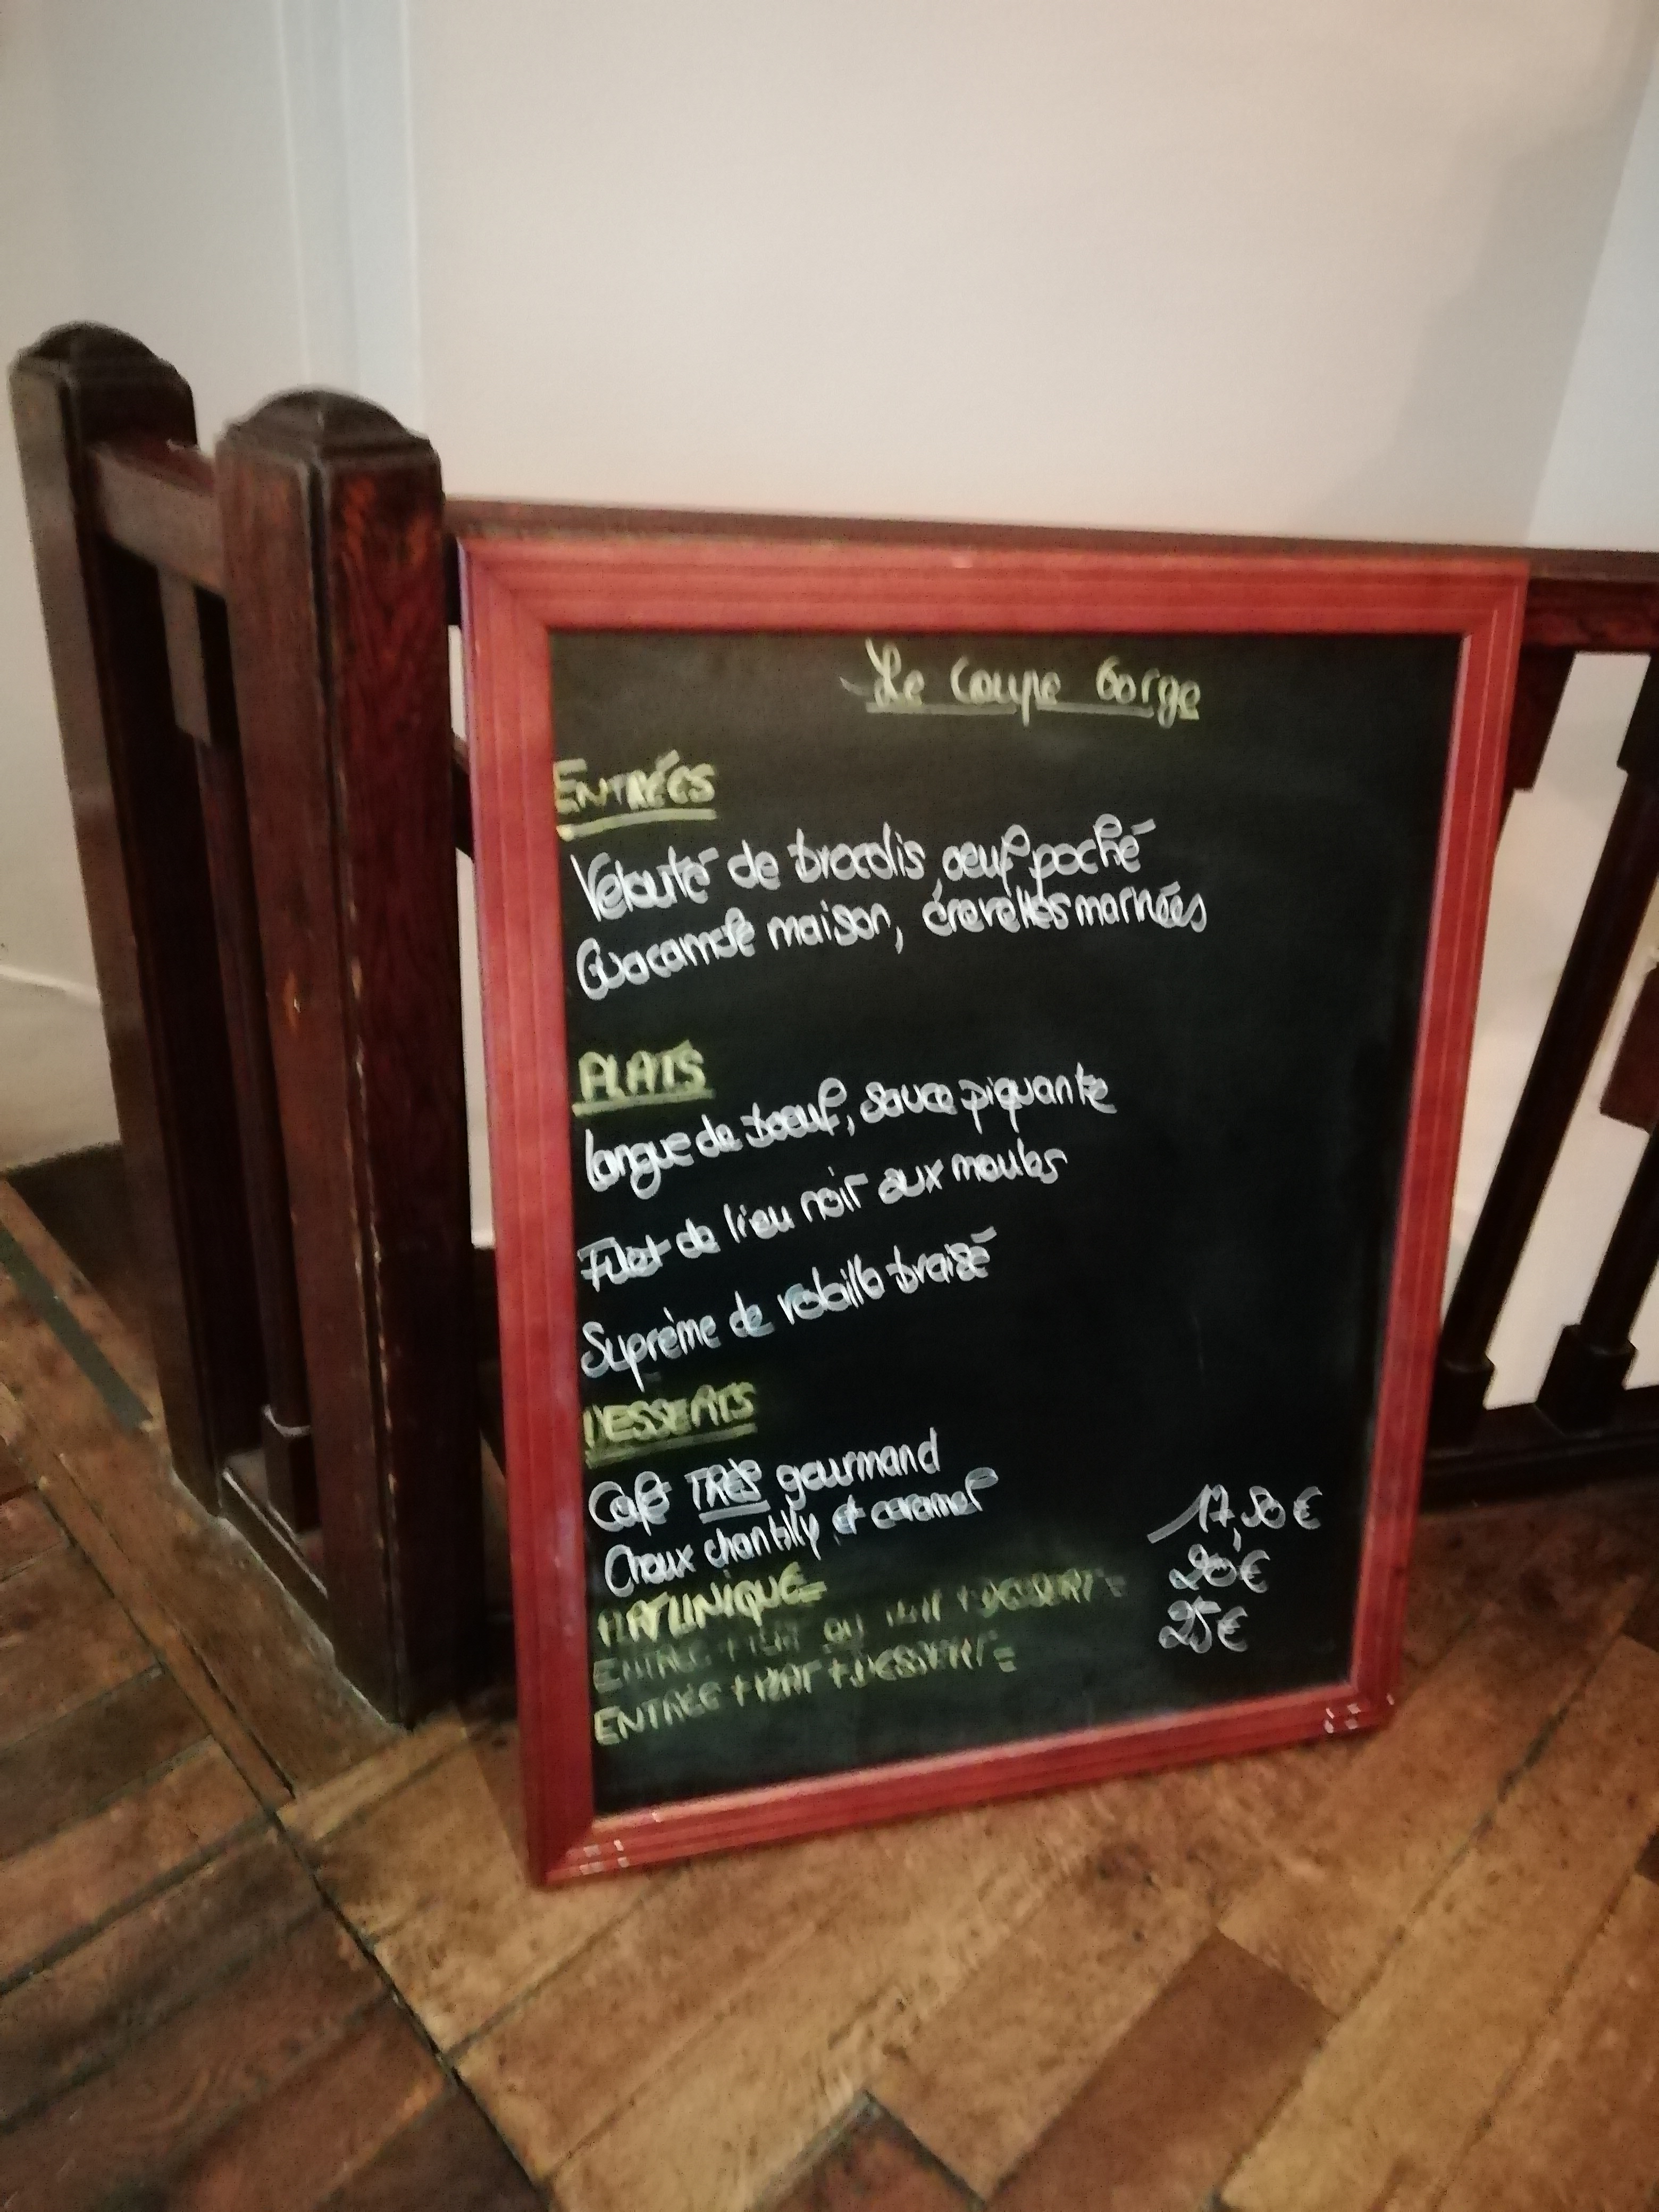 Le Coupe Gorge
ENTRÉES
Velouté de brocolis oeuf poché
Guacamole maison, crevettes marinées
PLATS
Langue de boeuf, sauce piquante
Filet de lieu noir aux moules
Suprème de volaille braisé
DESSERTS
Café TRÈS gourmand
Choux chantilly et caramel
PLAT UNIQUE= 17,50€
ENTRÉE + PLAT OU PLAT + DESSERT = 20€
ENTRÉE + PLAT + DESSERT = 25€